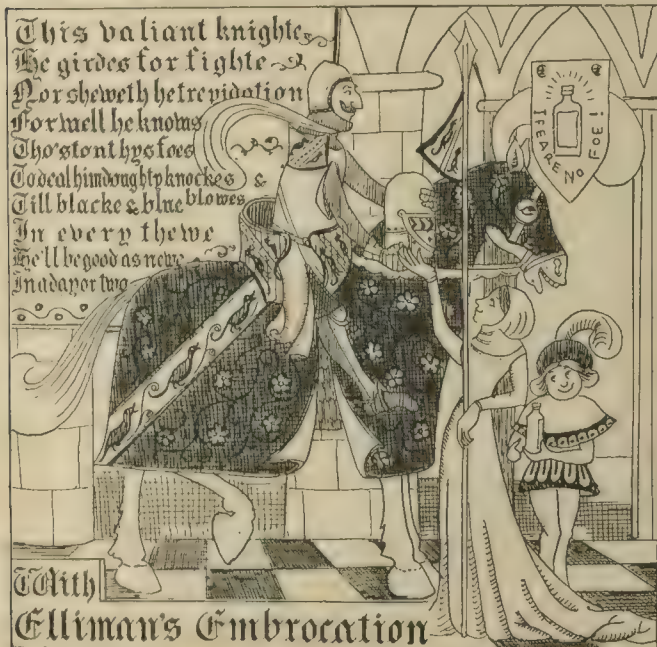 This valiant knighte
He girdes for fighte
Nor sheweth he trepidation
For well he knows
Tho' stout hys foes
To deal him doughty knockes &
Till blacke & blue blowes
In every thewe
He'll be good as newe
In a day or two
I FEARE NO FOE!
With
Elliman's Embrocation